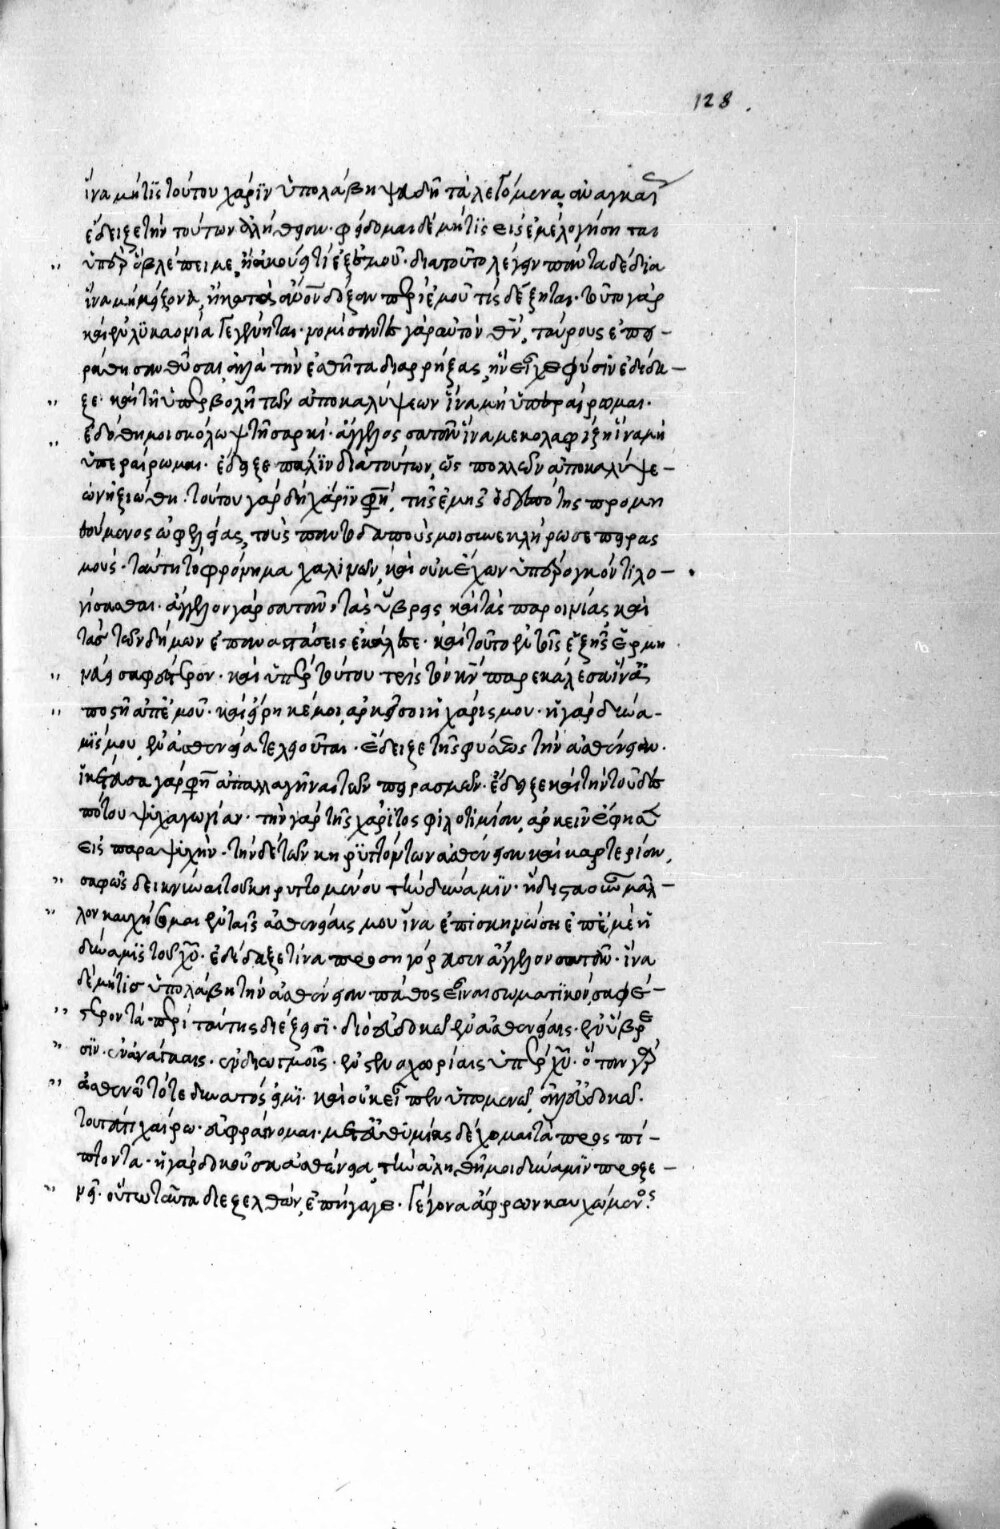 128
ἵνα μήτις τούτου χάριν ὑπολάβη ψευδῆ τὰ λεγόμενα, ἀναγκαί
ἔδειξε τὴν τούτων ἀλήθειαν· φείδομαι δὲ μήτις εἰς ἐμὲ λογήσηται
ὑπὲρ ὃ βλέπει με, ἢ ἀκούει τι ἐξ ἐμοῦ· διὰ τοῦτο λέγειν πάντα δέδια
ἵνα μὴ μείζονα, ἢ κατ' δόξαν περὶ ἐμοῦ τὶς δέξηται· τοῦτο γὰρ
καὶ ἐν λυκαονία γεγένηται· νομίσαντες γὰρ αὐτὸν θν, ταύρους ἐπει-
ράθησαν θῦσαι, ἀλλὰ τὴν ἐσθῆτα διαρρήξας, ἣν εἶχε φύσιν ἐδίδα-
ξε· καὶ τῆ ὑπερβολῆ τῶν ἀποκαλύψεων ἵνα μὴ ὑπεραίρωμαι·
ἐδόθη μοι σκόλωψ τῆ σαρκί· ἄγγελος σατᾶν ἵνα με κολαφίζη ἵνα μὴ
ὑπεραίρωμαι· ἔδειξε πάλιν διὰ τούτων, ὡς πολλῶν ἀποκαλύψε-
ων ἠξιώθη· τούτου γὰρ δὴ χάριν φησί, τῆς ἐμῆς ὁ δεσπότης προμη
θούμενος ὠφελείας, τοὺς παντοδαποὺς μοι συνεκλήρωσε πειρας
μούς· ταύτη τὸ φρόνημα χαλινῶν, καὶ οὐκ ἐῶν ὑπέρογκόν τι λο-
γίσασθαι· ἄγγελον γὰρ σατᾶν, τὰς ὕβρεις καὶ τὰς παροινίας καὶ
τὰς τῶν δήμων ἐπαναστάσεις ἐκάλεσε· καὶ τοῦτο ἐν τοῖς ἑξῆς ἑρμη
νεύει σαφέστερον· καὶ ὑπὲρ τούτου τρὶς τὸν κν παρεκάλεσα ἵνα ἀ
ποστῆ ἀπ' ἐμοῦ· καὶ εἴρηκέ μοι, ἀρκεῖ σοι ἡ χάρις μου· ἡ γὰρ δύνα-
μίς μου, ἐν ἀσθενεία τελειοῦται· ἔδειξε τῆς φύσεως τὴν ἀσθένειαν·
ἱκέτευσα γὰρ φησὶν ἀπαλλαγῆναι τῶν πειρασμῶν· ἔδειξε καὶ τὴν τοῦ δεσ
πότου ψυχαγωγίαν· τὴν γὰρ τῆς χάριτος φιλοτιμίαν, ἀρκεῖν ἔφησ
εἰς παραψυχήν· τὴν δὲ τῶν κηρυττόντων ἀσθένειαν καὶ καρτερίαν,
σαφῶς δεικνύναι τοῦ κηρυττομένου τὴν δύναμιν· ἥδιστα οὖν μᾶλ-
λον καυχήσομαι ἐν ταῖς ἀσθενείαις μου ἵνα ἐπισκηνώση ἐπ' ἐμὲ ἡ
δύναμις τοῦ χυ· ἐδίδαξε τίνα προσηγόρευσεν ἄγγελον σατᾶν· ἵνα
δὲ μήτις ὑπολάβη τὴν ἀσθένειαν πάθος εἶναι σωματικόν, σαφέ-
στερον τὰ περὶ ταύτης διέξεισι· διὸ εὐδοκῶ ἐν ἀσθενείαις· ἐν ὕβρε
σιν· ἐν ἀνάγκαις· ἐν διωγμοῖς· ἐν στενοχωρίαις ὑπὲρ χυ· ὅταν γὰρ
ἀσθενῶ τότε δυνατός εἰμι· καὶ οὐκ εἶπεν ὑπομένω, ἀλλ' εὐδοκῶ·
τουτέστι χαίρω· εὐφραίνομαι· μετ' εὐθυμίας δέχομαι τὰ προσπί-
πτοντα· ἡ γὰρ δοκοῦσα ἀσθένεια, τὴν ἀληθῆ μοι δύναμιν προξε-
νεῖ· οὕτω ταῦτα διεξελθών, ἐπήγαγε· γέγονα ἄφρων καυχώμενος·